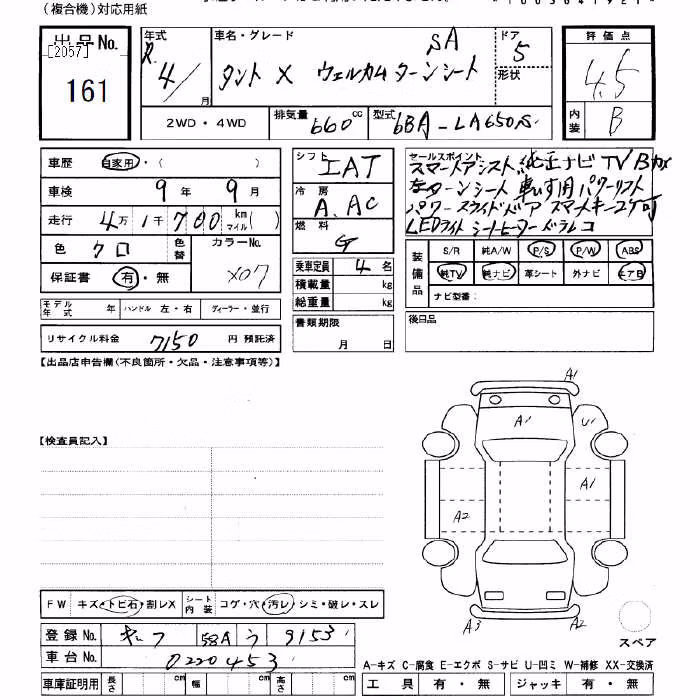 (複合機)対応用紙
出品No. 年式 車名・グレード ドア 評価点
[2057] R 4/ 月 タント X ウェルカムターンシート SA 5 形状 4.5
161
2WD・4WD 排気量 660 cc 型式 6BA-LA650S 内装 B
車歴 自家用・( ) シフト IAT セールスポイント
スマートアシスト 純正ナビ TV Bカメ
車検 9年 9月 冷房 A.AC
左ターンシート 車いす用パワーリフト
走行 4万 1千 700 km マイル ( ) 燃料 G
パワースライドドア スマートキー2ケ可
LEDライト シートヒーター ドラレコ
色 クロ 色替 カラーNo. X07
保証書 有・無
乗車定員 4 名
積載量 kg
総重量 kg
装備品 S/R 純A/W P/S P/W ABS
純TV 純ナビ 革シート 外ナビ エアB
ナビ型番:
モデル年式 年 ハンドル 左・右 ディーラー・並行
書類期限 月 日
後日品
リサイクル料金 7150 円 預託済
【出品店申告欄(不良箇所・欠品・注意事項等)】
A1
A1 U1
【検査員記入】
A1
A2
FW キズ・トビ石・割レX シート内装 コゲ・穴・汚レ・シミ・破レ・スレ
A3 A2
スペア
登録No. 58A う 9153
車台No. 0220453
A-キズ C-腐食 E-エクボ S-サビ U-凹ミ W-補修 XX-交換済
車庫証明用 長さ cm 幅 cm 高さ cm 工具 有・無 ジャッキ 有・無